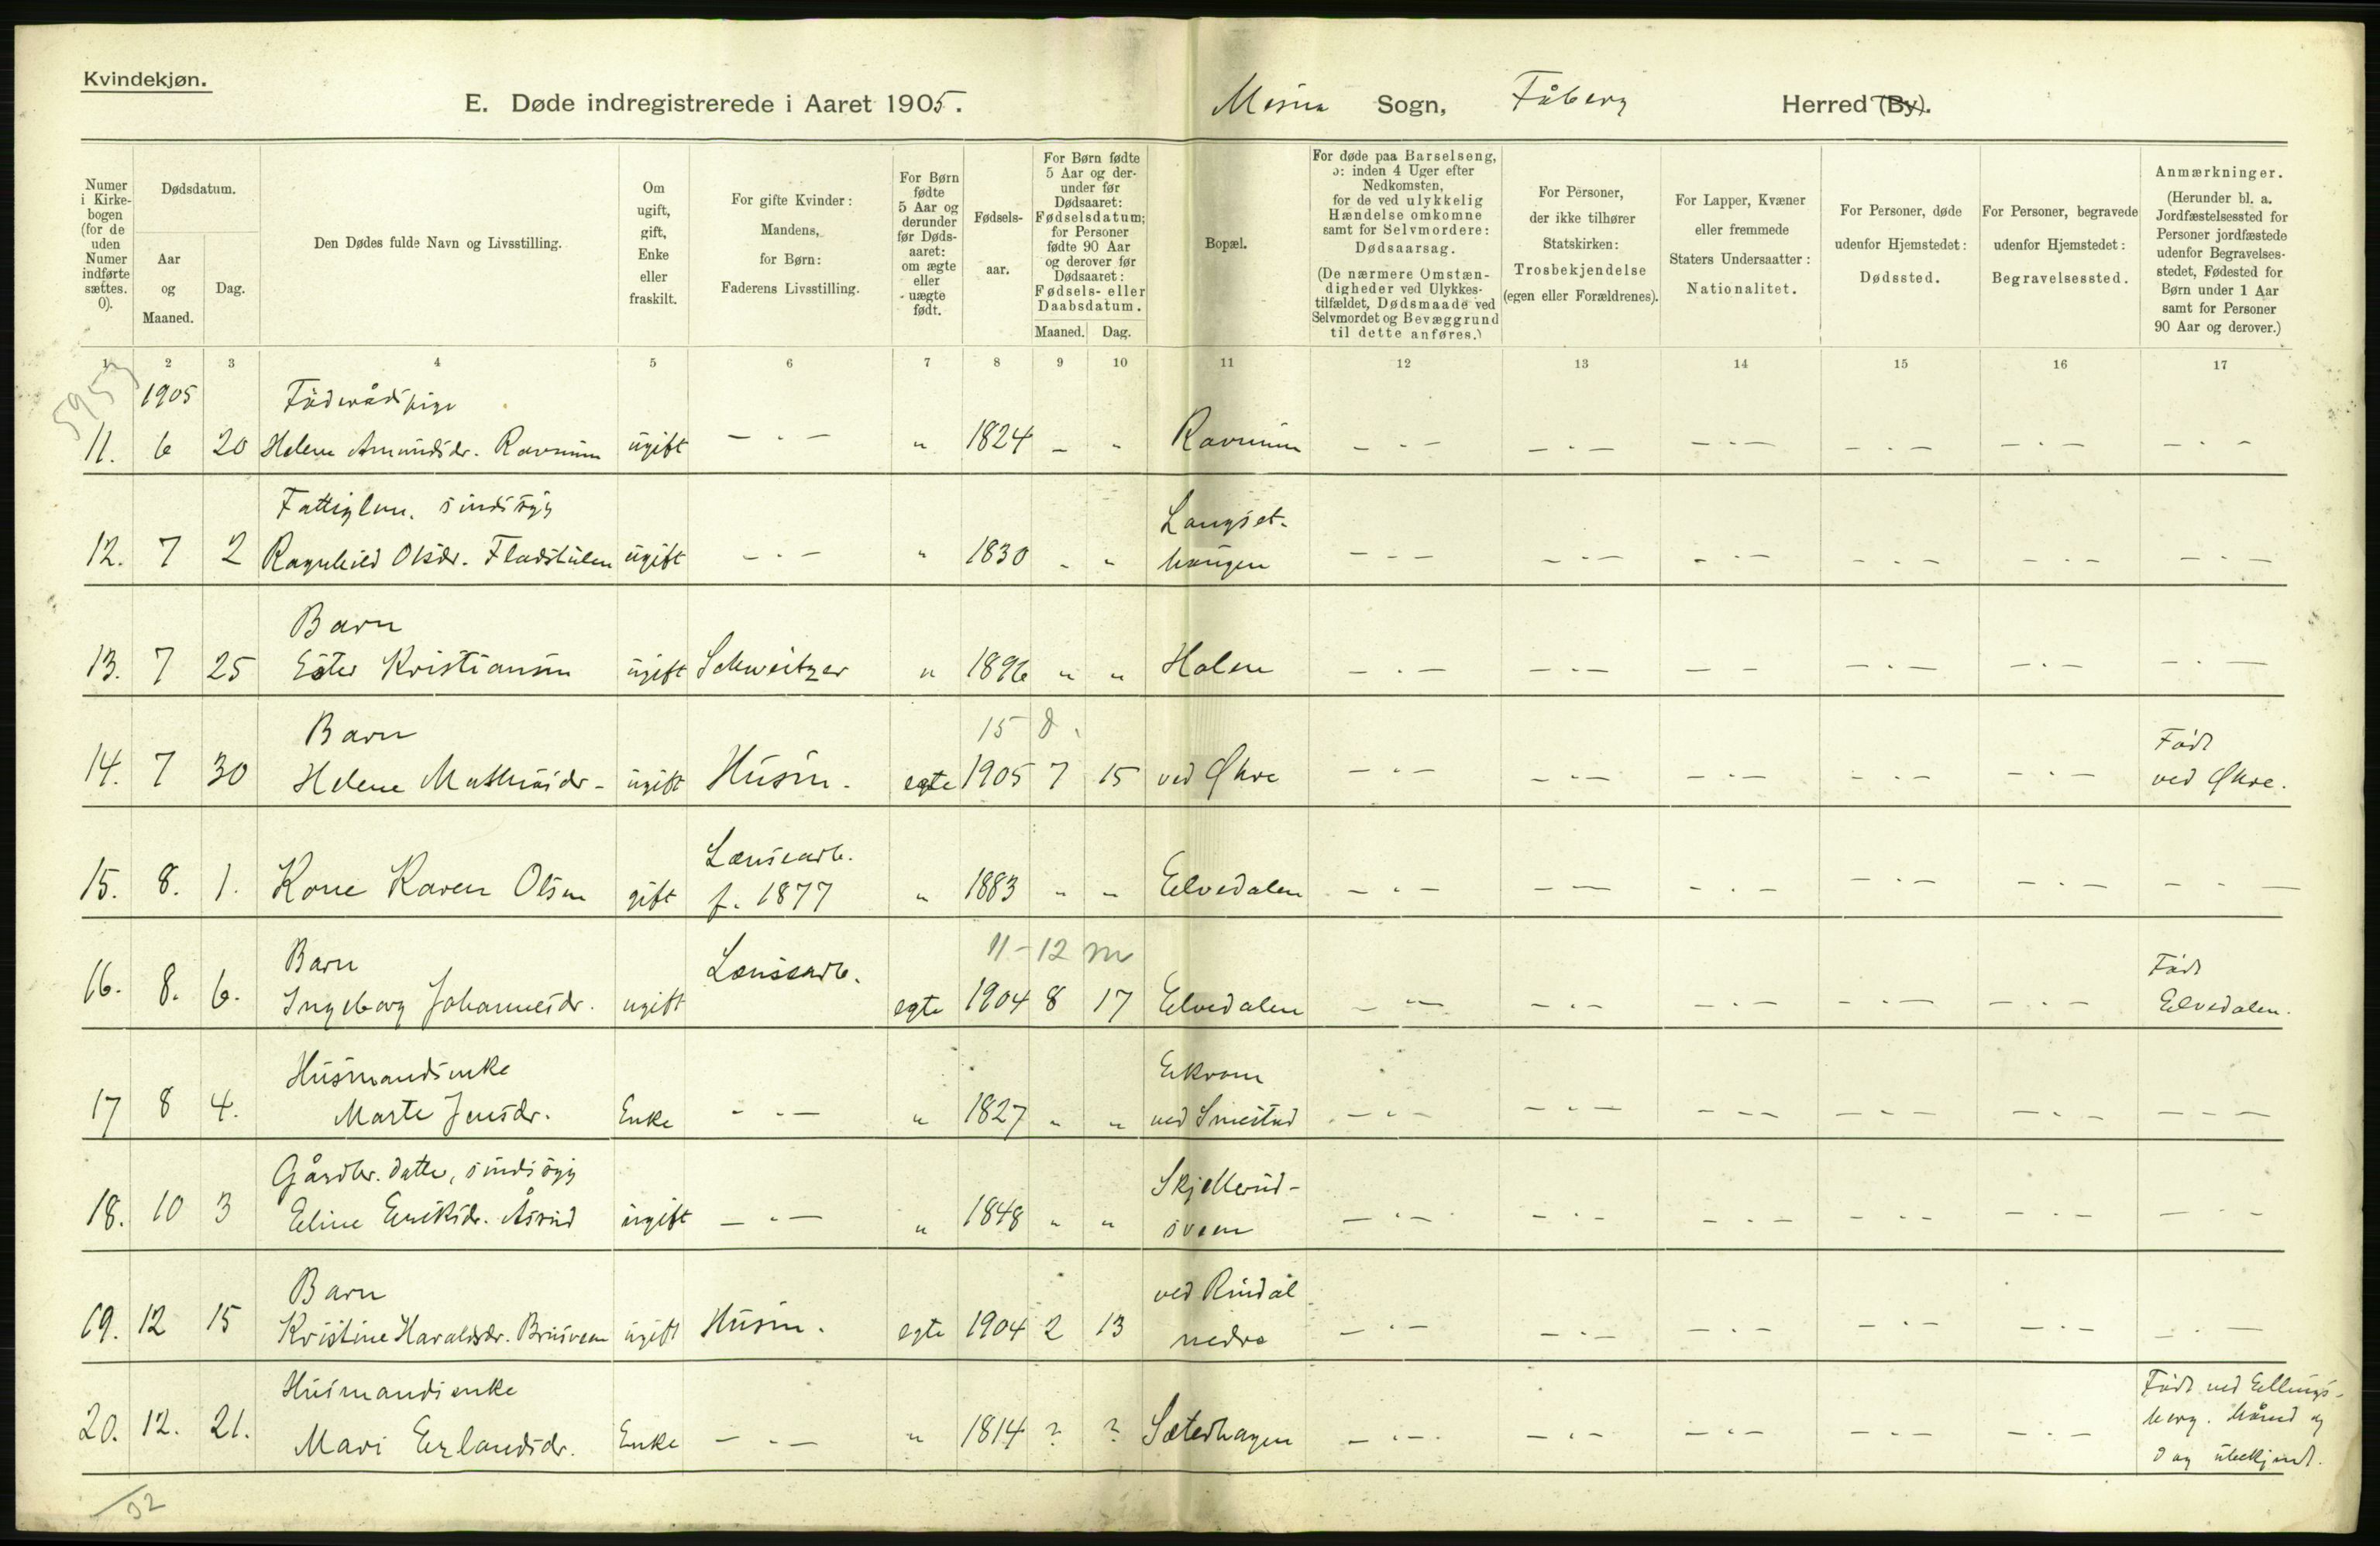 Kvindekjøn.
E. Døde indregistrerede i Aaret 1905. Mesna Sogn, Fåberg Herred (By).
Numer i Kirkebogen (for de uden Numer indførte sættes. 0).
Dødsdatum.
Aar og Maaned.
Dag.
Den Dødes fulde Navn og Livsstilling.
Om ugift, gift, Enke eller fraskilt.
For gifte Kvinder: Mandens, for Børn: Faderens Livsstilling.
For Børn fødte 5 Aar og derunder før Dødsaaret: om ægte eller uægte født.
Fødselsaar.
For Børn fødte 5 Aar og derunder før Dødsaaret: Fødselsdatum; for Personer fødte 90 Aar og derover før Dødsaaret: Fødsels- eller Daabsdatum.
Maaned. Dag.
Bopæl.
For døde paa Barselseng, ɔ: inden 4 Uger efter Nedkomsten, for de ved ulykkelig Hændelse omkomne samt for Selvmordere: Dødsaarsag.
(De nærmere Omstændigheder ved Ulykkestilfældet, Dødsmaade ved Selvmordet og Bevæggrund til dette anføres.)
For Personer, der ikke tilhører Statskirken: Trosbekjendelse (egen eller Forældrenes).
For Lapper, Kvæner eller fremmede Staters Undersaatter: Nationalitet.
For Personer, døde udenfor Hjemstedet: Dødssted.
For Personer, begravede udenfor Hjemstedet: Begravelsessted.
Anmærkninger.
(Herunder bl. a. Jordfæstelsessted for Personer jordfæstede udenfor Begravelsesstedet, Fødested for Børn under 1 Aar samt for Personer 90 Aar og derover.)
1 2 3 4 5 6 7 8 9 10 11 12 13 14 15 16 17
5953
1905 Föderådspige
11. 6 20 Helene Amundsdr. Ravnum ugift — " — " 1824 - " Ravnum
Fattiglem. sindssyg Langset-
12. 7 2 Ragnhild Olsdr. Fladstulen ugift — " — " 1830 " " haugen
Barn
13. 7 25 Ester Kristiansen ugift Schweitzer " 1896 " " Holen
Barn 15 d. Født
14. 7 30 Helene Mathiasdr. ugift Husm. egte 1905 7 15 ved Økre ved Økre.
Lænsearb.
15. 8. 1. Kone Karen Olsen gift f. 1877 " 1883 " " Elvedalen
Barn Lænsearb. 11-12 m Født
16. 8. 6. Ingeborg Johannesdr. ugift egte 1904 8 17 Elvedalen Elvedalen.
Husmandsenke Ekrom
17 8 4. Marte Jensdr. Enke " 1827 " " ved Smestad
Gårdbr. datter, sindssyg Skjellerud-
18. 10 3 Eline Eriksdr. Åsrud ugift " 1848 " " sveen
Barn ved Rindal
19. 12 15 Kristine Haraldsdr. Brusveen ugift Husm. egte 1904 2 13 nedre
Husmandsenke Født ved Ellings-
20. 12. 21. Mari Erlandsdr. Enke " 1814 ? ? Sæterhagen berg. Måned og
Dag ubekjendt.
/32